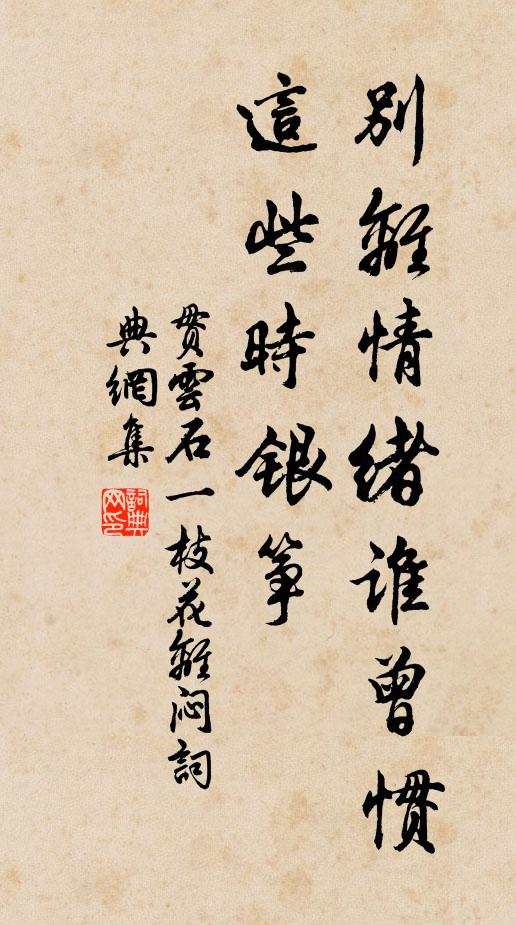 別離情緒誰曾慣
這些時銀箏
貫雲石一枝花離悶詞
典網集
詞典網印